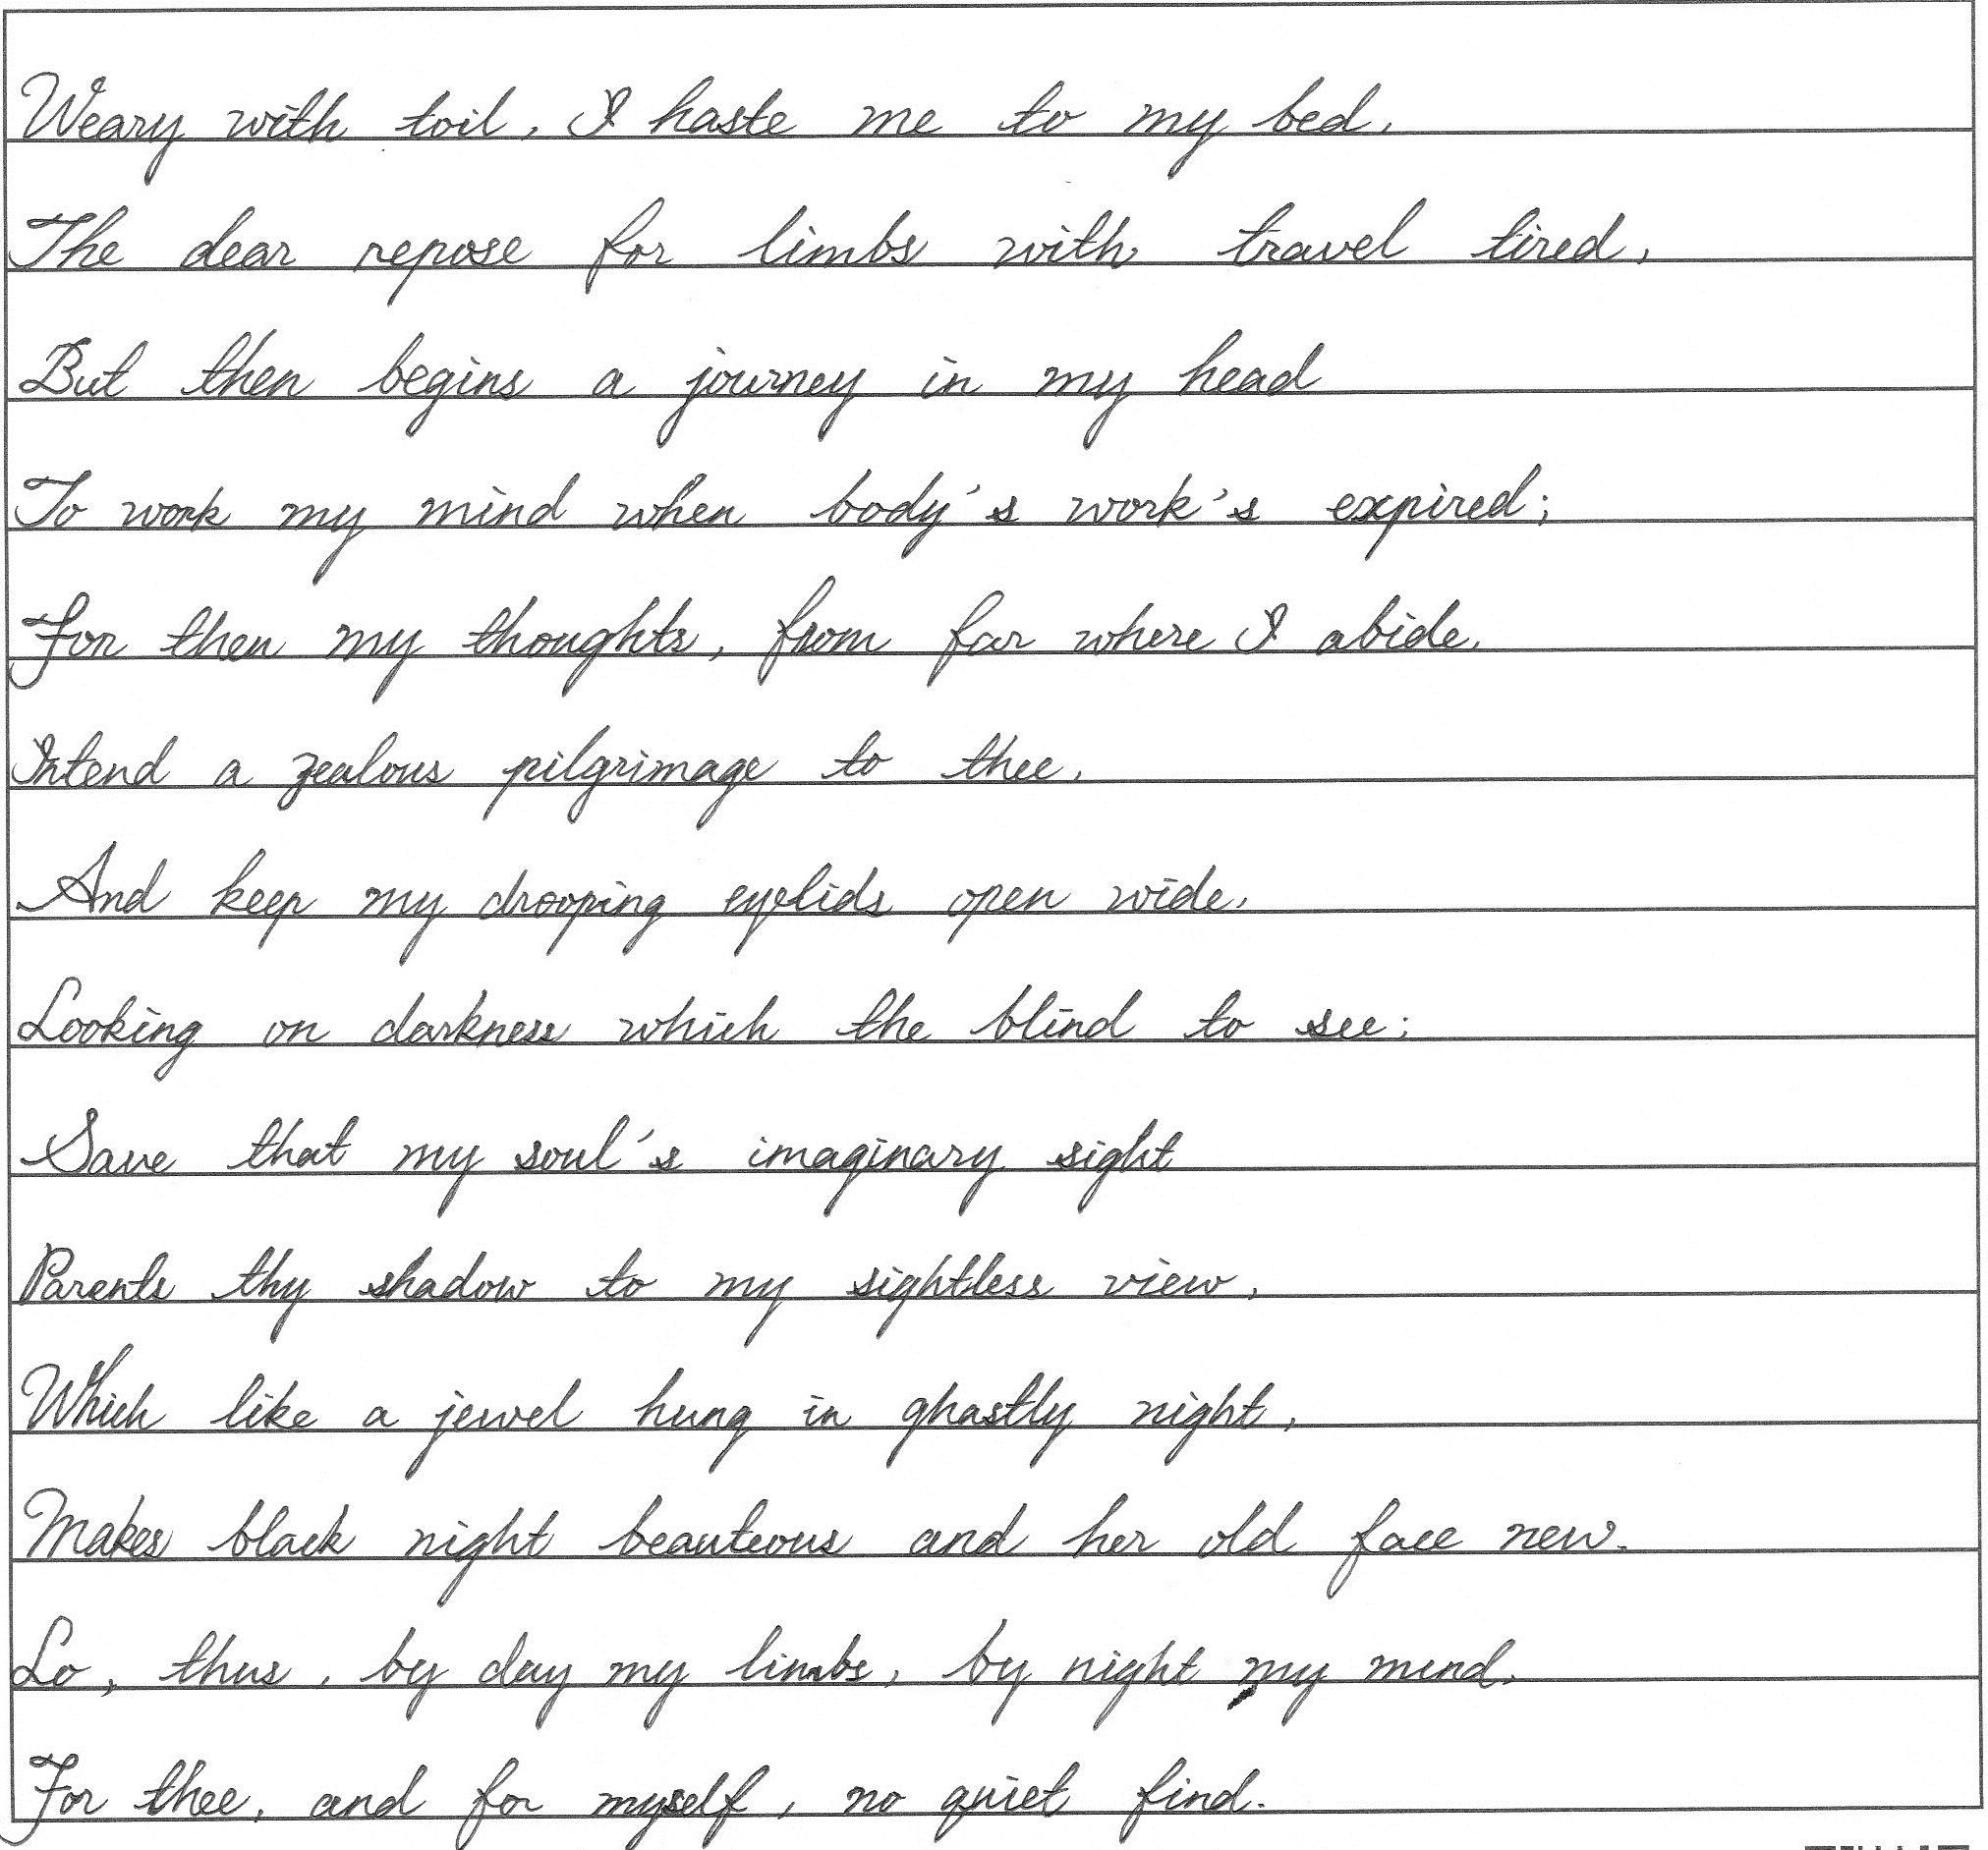 Weary with toil, I haste me to my bed,
The dear repose for limbs with travel tired,
But then begins a journey in my head
To work my mind when body's work's expired;
For then my thoughts, from far where I abide,
Intend a zealous pilgrimage to thee,
And keep my drooping eyelids open wide,
Looking on darkness which the blind to see:
Save that my soul's imaginary sight
Parents thy shadow to my sightless view,
Which like a jewel hung in ghastly night,
Makes black night beauteous and her old face new.
Lo, thus, by day my limbs, by night my mind,
For thee, and for myself, no quiet find.